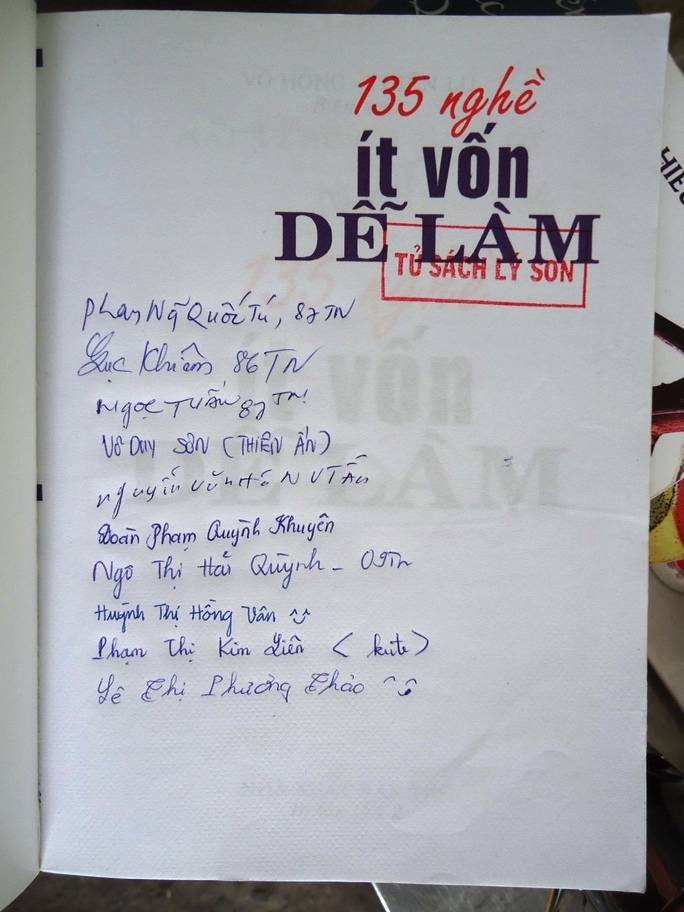 135 nghề
ít vốn
DỄ LÀM
TỦ SÁCH LÝ SƠN
Phan Ngũ Quốc Tú, 87TN
Lục Khiêm 86TN
Ngọc Tuấn 87TN!
Võ Duy Sơn (THIÊN ẤN)
nguyễn văn
Đoàn Phạm Quỳnh Khuyên
Ngô Thị Hải Quỳnh - 09TN
Huỳnh Thị Hồng Vân ^^
Phạm Thị Kim Liên < kute >
Lê Thị Phương Thảo ^^